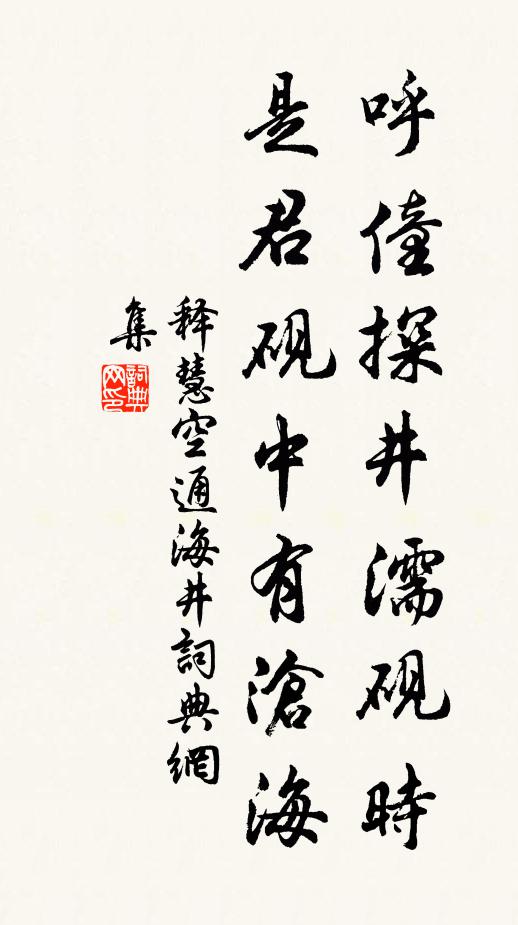 呼僮探井濡硯時
是君硯中有滄海
释慧空通海井詞典網
集
詞典
网印